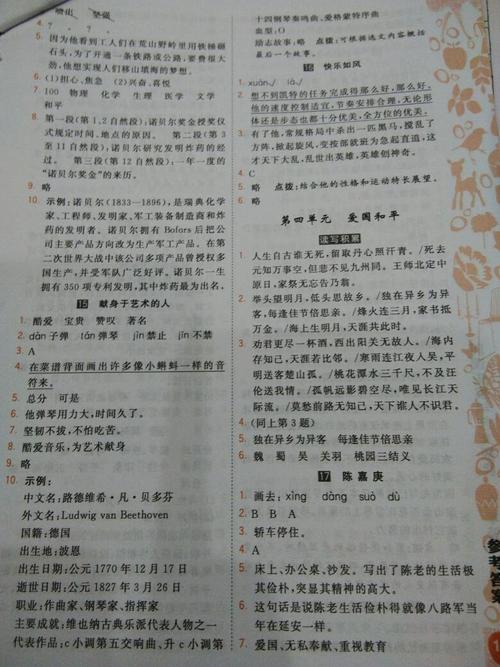 喷出 坚强
? ?
5. 因为他看到工人们在荒山野岭里用铁锤砸
石头,为了开通一条铁路或公路,要费很大
劲,他想实现人们移山填海的梦想。
6. (1)担心、焦急 (2)兴奋、喜悦
7. 100 物理 化学 生理 医学 文学
和平
8. 第一段(第1、2自然段):诺贝尔奖金授奖仪
式规定时间、地点的原因。 第二段(第3
至11自然段):诺贝尔研究发明炸药的经
过。 第三段(第12自然段):一年一度的
“诺贝尔奖金”的来历。
9. 略
10. 示例:诺贝尔(1833—1896),是瑞典化学
家、工程师、发明家、军工装备制造商和炸
药的发明者。诺贝尔拥有Bofors后把公
司主要产品方向改为生产军工产品。在第
二次世界大战中该公司多项产品曾授权多
国生产,并受军队广泛好评。诺贝尔一生
拥有350项专利发明,其中炸药最为出名。
15 献身于艺术的人
1. 酷爱 宝贵 赞叹 著名
2. dàn子弹 tán弹琴 jìn禁止 jīn不禁
3. A
4. 在菜谱背面画出许多像小蝌蚪一样的音
符来。
5. 总分 可是
6. 他弹琴用力大,时间久了。
7. 坚韧不拔,不怕吃苦。
8. 酷爱音乐,为艺术献身
9. 略
10. 示例:
中文名:路德维希·凡·贝多芬
外文名:Ludwig van Beethoven
国籍:德国
出生地:波恩
出生日期:公元1770年12月17日
逝世日期:公元1827年3月26日
职业:作曲家、钢琴家、指挥家
主要成就:维也纳古典乐派代表人物之一
代表作品:c小调第五交响曲、升c小调第
十四钢琴奏鸣曲、爱格蒙特序曲
血型:O
励志故事:略 点拨:可根据选文内容概括
最后一个故事。
16 快乐如风
1. xuàn√ là√
2. 想不到凯特的任务完成得那么好,那么好。
他的速度控制适宜,节奏安排合理,无论形
体还是步态也都十分优美,全方位的优美。
3. 有了他,常规格局中杀出一匹黑马,搅乱了
方阵,掀起旋风,受按部就班为急起直追,这
才天下大乱,乱世出英雄,英雄创神奇。
4. C
5. 略 点拨:结合他的性格和运动特长展望。
6. 略
第四单元 爱国和平
读写积累
1. 人生自古谁无死,留取丹心照汗青。/死去
元知万事空,但悲不见九州同。王师北定中
原日,家祭无忘告乃翁。
2. 举头望明月,低头思故乡。/独在异乡为异
客,每逢佳节倍思亲。/烽火连三月,家书抵
万金。/海上生明月,天涯共此时。
3. 劝君更尽一杯酒,西出阳关无故人。/海内
存知己,天涯若比邻。/寒雨连江夜入吴,平
明送客楚山孤。/桃花潭水三千尺,不及汪
伦送我情。/孤帆远影碧空尽,唯见长江天
际流。/莫愁前路无知己,天下谁人不识君。
4. (同上第3题)
5. 独在异乡为异客 每逢佳节倍思亲
6. 魏 蜀 吴 关羽 桃园三结义
17 陈嘉庚
1. 画去:xìng dàng suō dù
2. B B A
3. 轿车停住。
4. A
5. 床上、办公桌、沙发。写出了陈老的生活极
其俭朴,突显其精神的高大。
6. 这句话是说陈老生活俭朴得就像八路军当
年在延安一样。
7. 爱国、无私奉献、重视教育
参考答案